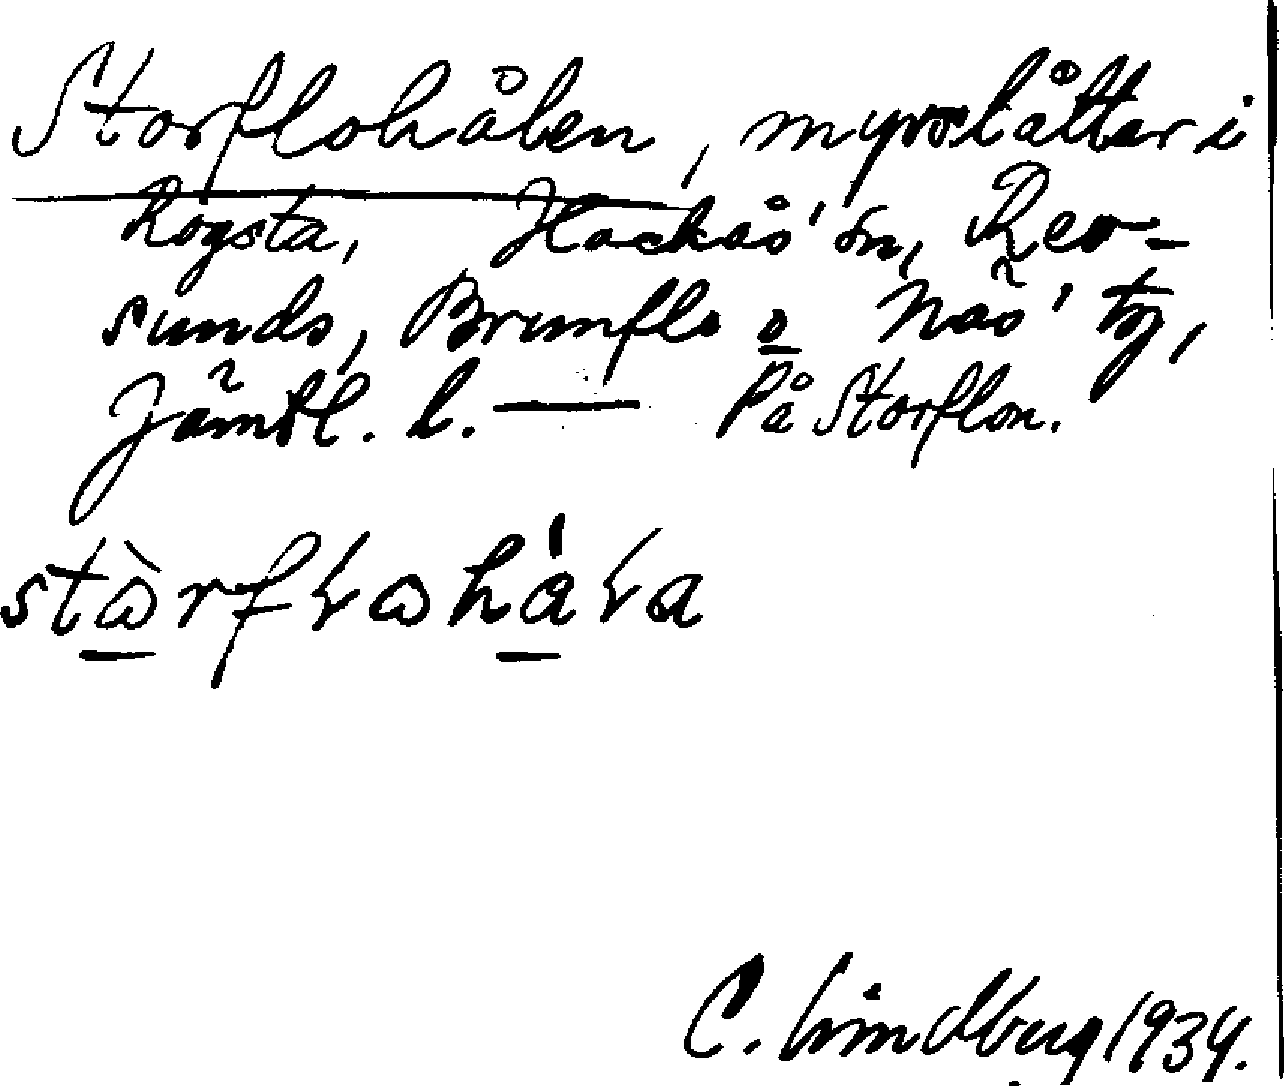 Storflohålen, myrslåtter i
Rögsta, Hackås' sn, Rev-
sunds, Brunflo o Näs' tg,
Jämtl. l. — På Storflon.
C. Lindberg 1934.